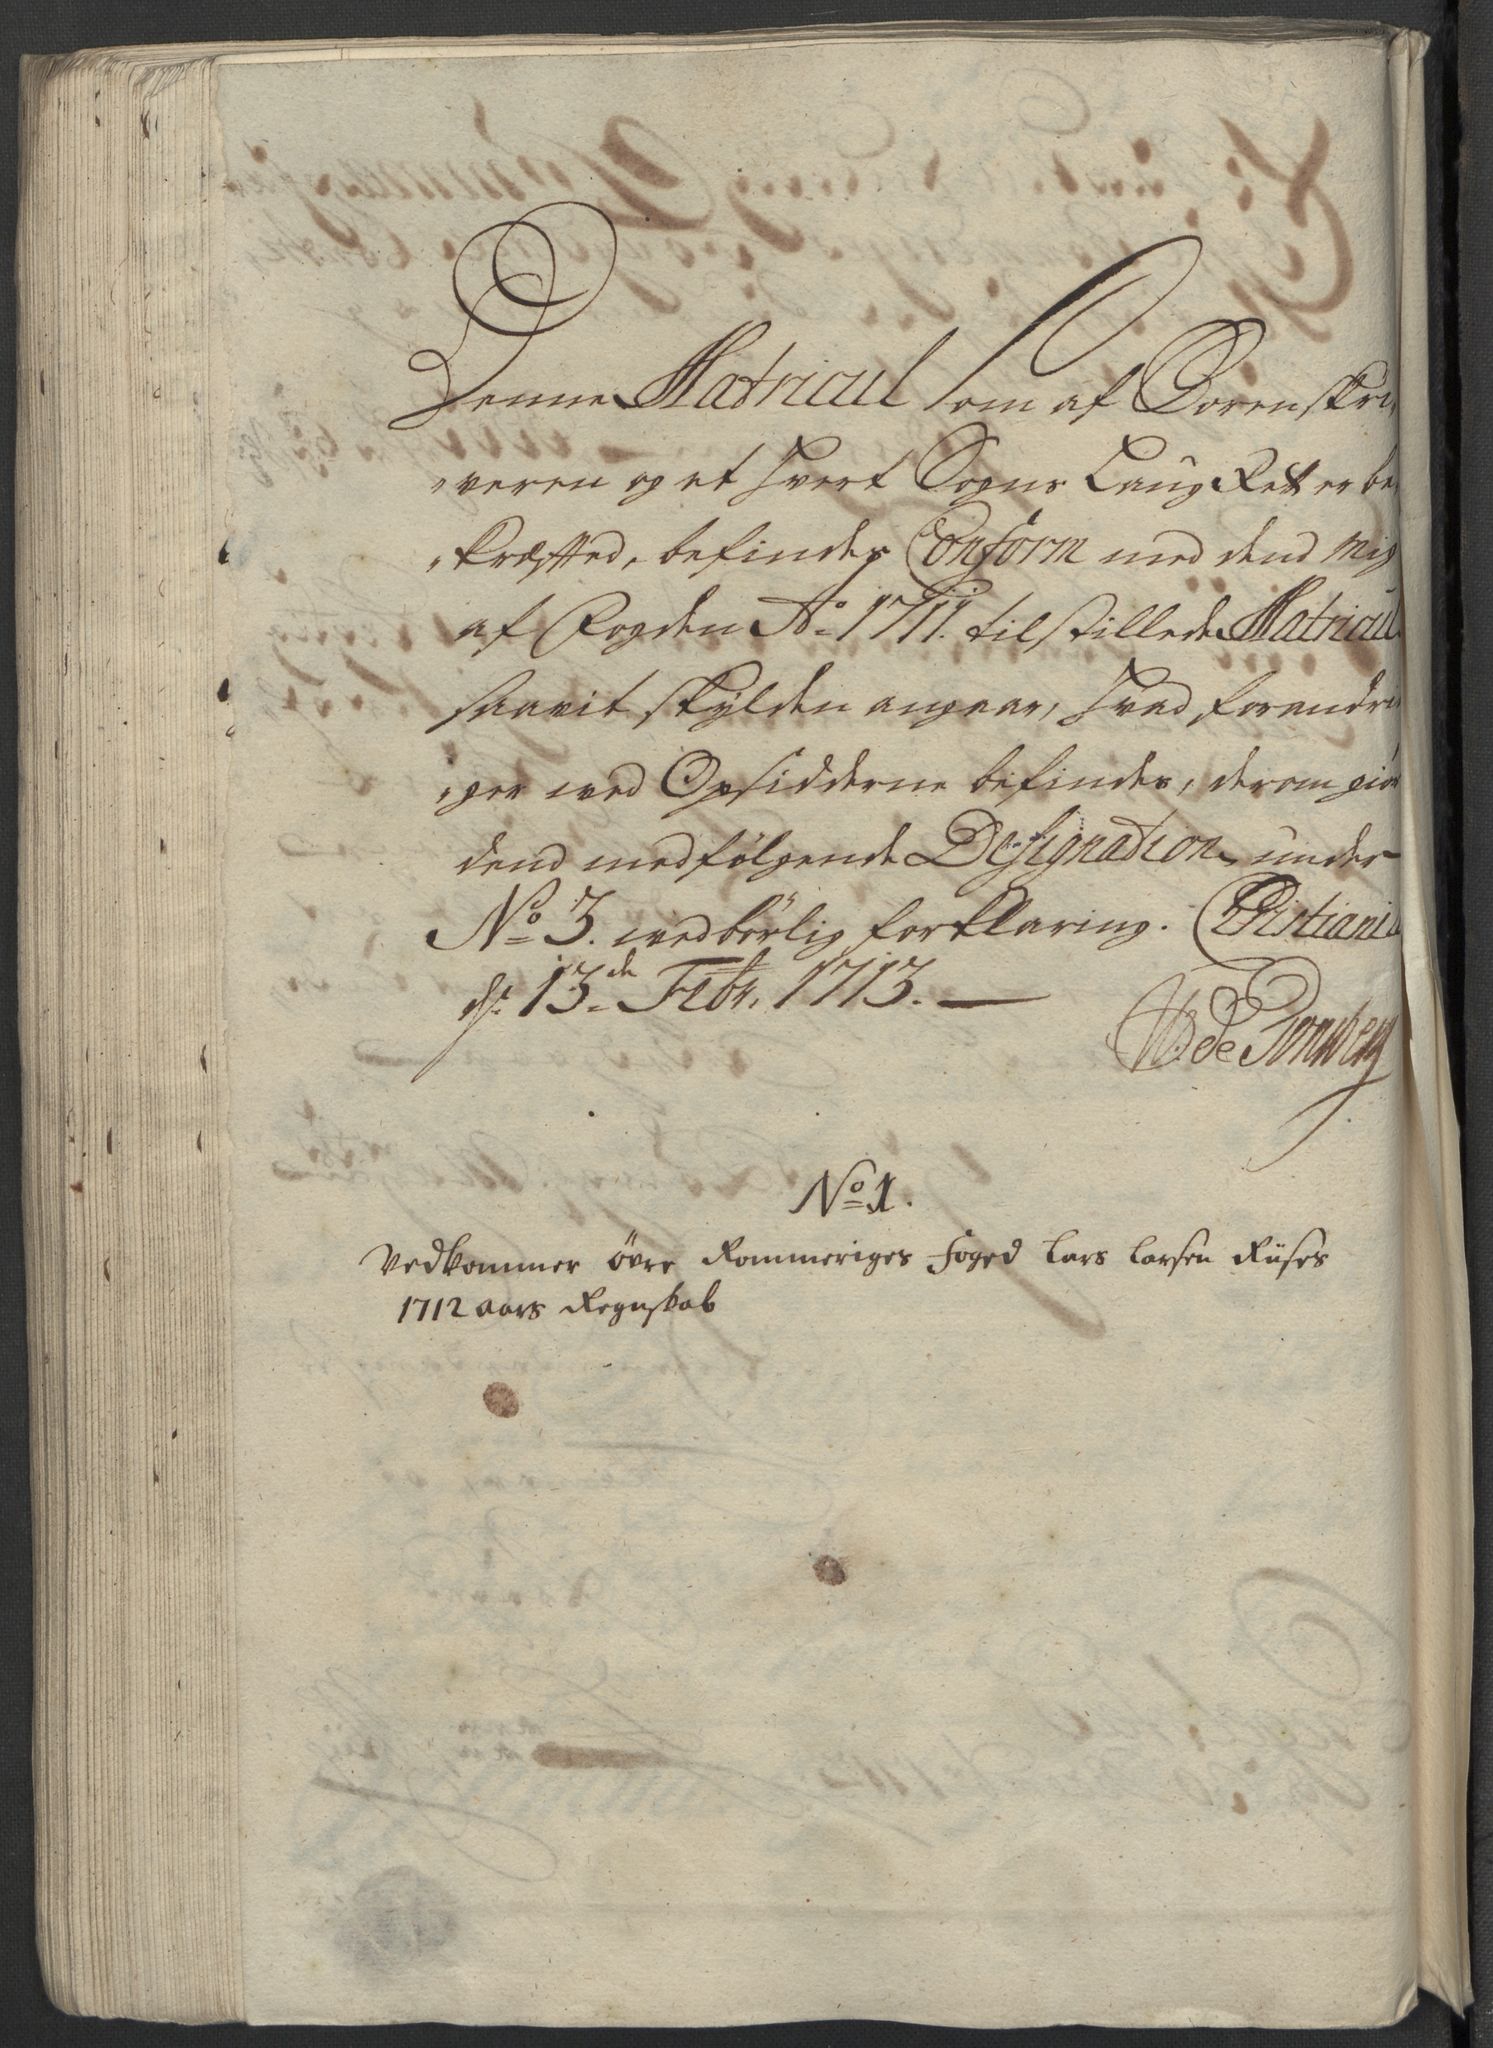 Denne Matricul som af Sorenskri-
-veren og et hvert Sogns Laug Rett er be-
-kræfted, befindes Conform med dend mig
af Fogden Ao 1711. tilstillede Matricul
saavit skylden angaar, hvad forandrin-
-ger ved Opsidderne befindes, derom giør
dend medfølgende Designation under
No 3. vedbørlig forklaring. Christiania
dn 13de Febr. 1713.
W: de Tonsberg
No 1.
Vedkommer øvre Rommeriges Foged Lars Larsen Riises
1712 aars Regnskab